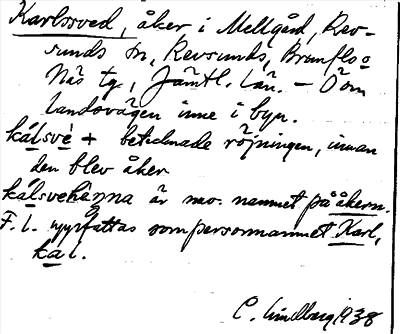 Karlssved, åker i Mellgård, Rev-
sunds sn, Revsunds, Brunflo o
Näs tg, Jämtl. län. – Ö om
landsvägen inne i byn.
kálsvè + betecknade röjningen, innan
den blev åker
kálsvehènna är nuv. namnet på åkern.
F. l. uppfattas som personnamnet Karl,
kal.
C. Lindberg 1938